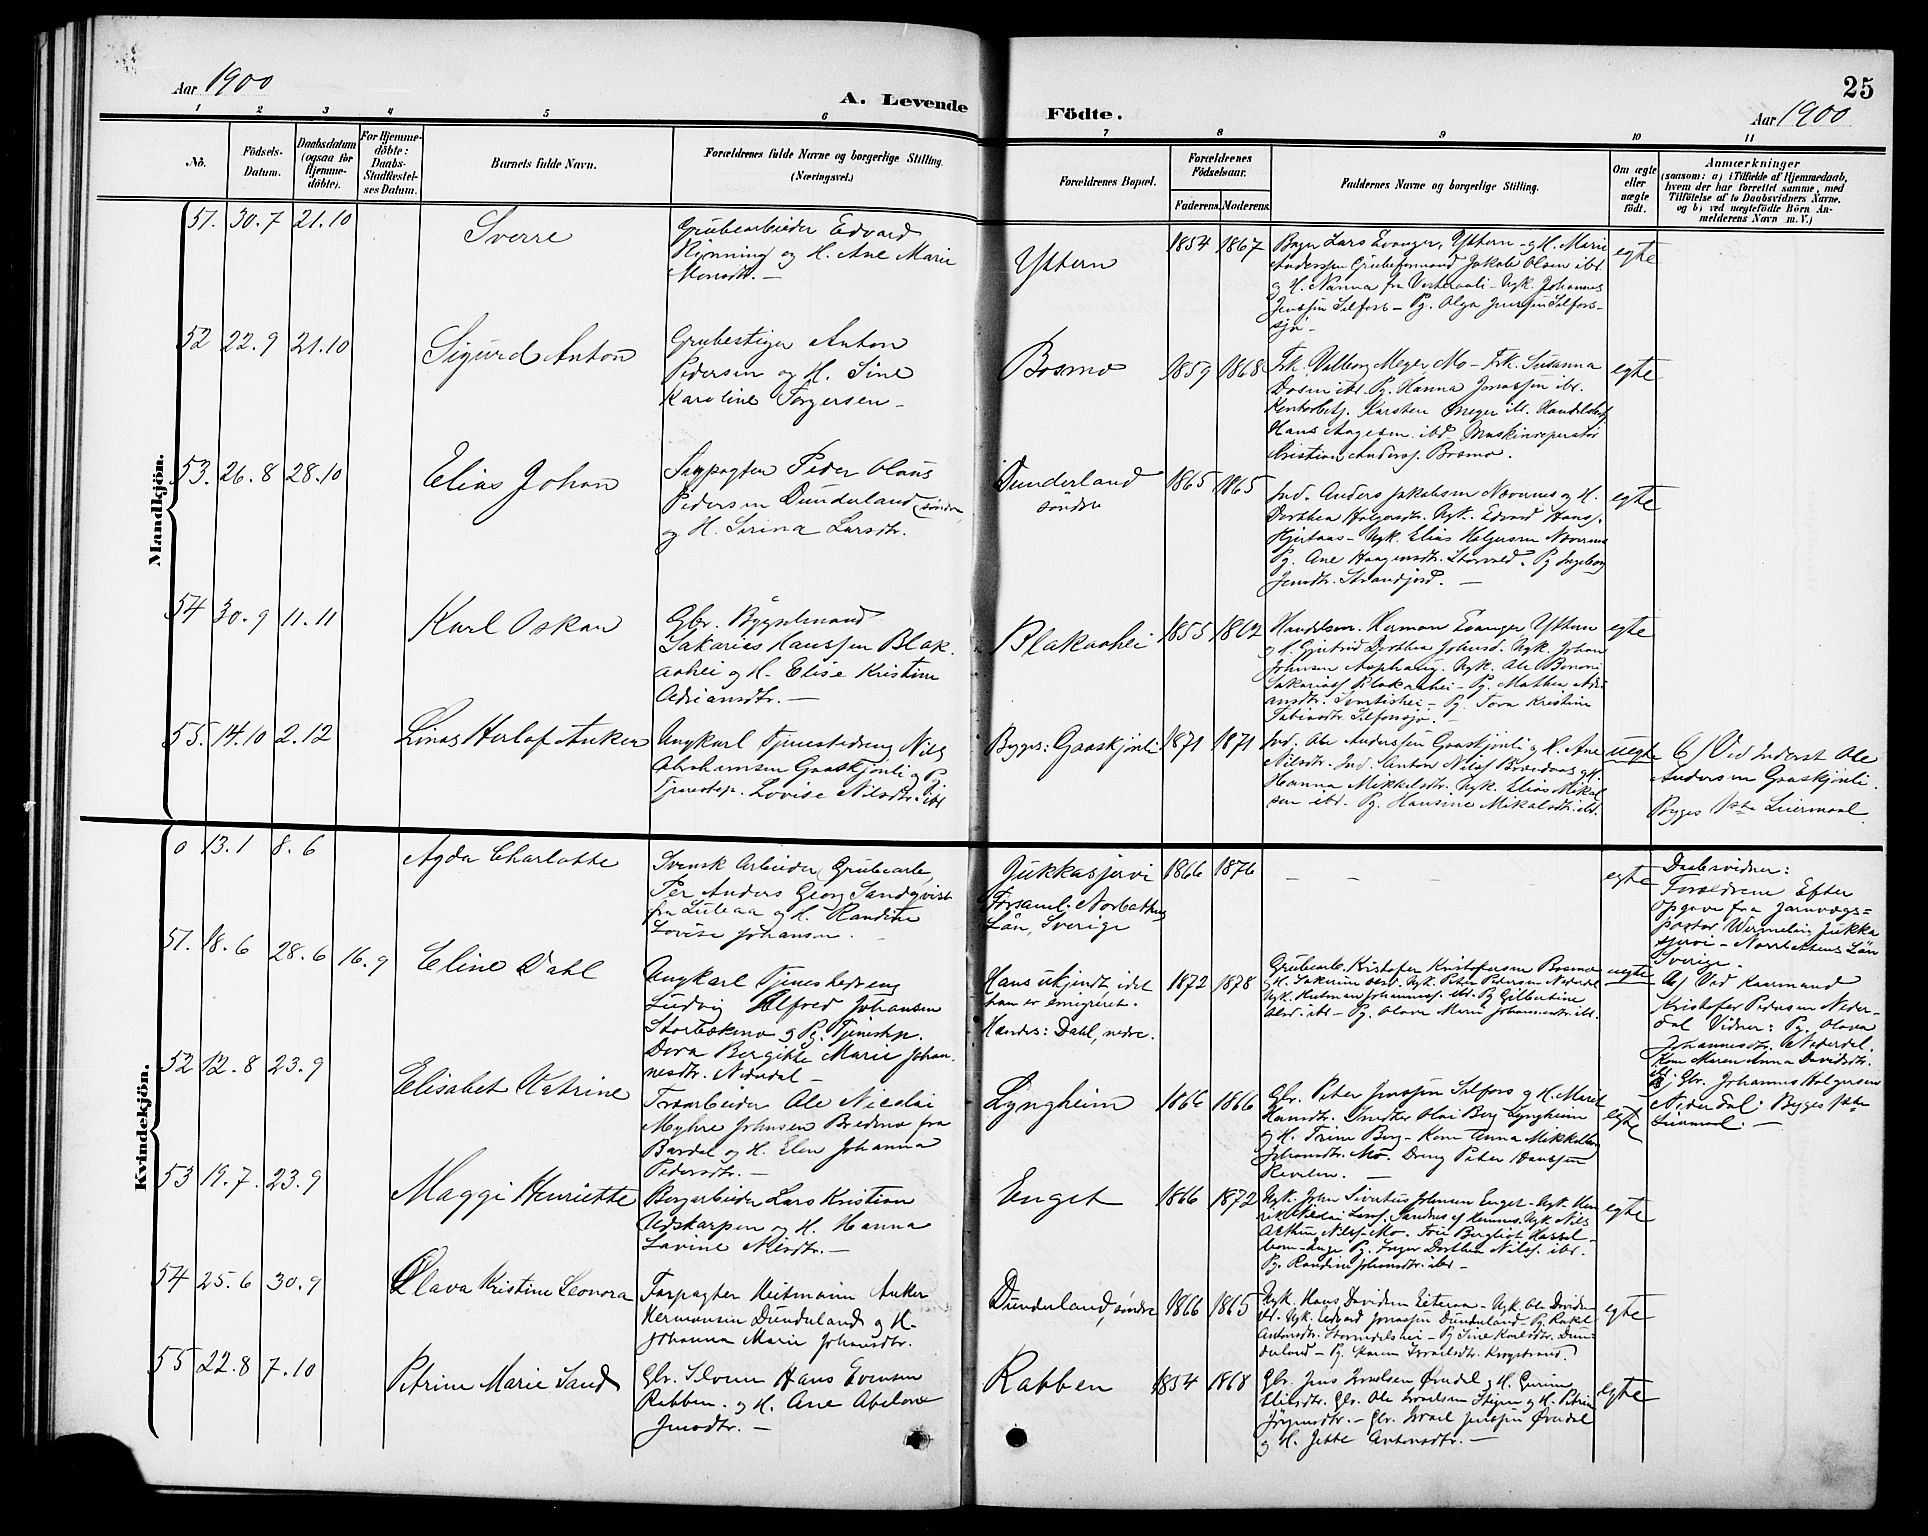 Aar 1900
A. Levende
Födte.
25
Aar 1900
1 2 3 4 5 6 7 8 9 10 11
No.
Födsels-
Datum.
Daabsdatum
(ogsaa for
Hjemme-
döbte).
For Hjemme-
döbte:
Daabs-
Stadfæstel-
ses Datum.
Barnets fulde Navn.
Forældrenes fulde Navne og borgerlige Stilling.
(Næringsvei.)
Forældrenes Bopæl.
Forældrenes
Födselsaar.
Faderens. Moderens.
Faddernes Navne og borgerlige Stilling.
Om ægte
eller
uægte
födt.
Anmærkninger
(saasom: a) i Tilfælde af Hjemmedaab,
hvem der har forrettet samme, med
Tilföielse af to Daabsvidners Navne.
og b) ved uægtefödte Börn An-
melderens Navn m. V.)
Mandkjön.
51. 30.7 21.10
Sverre
Grubearbeider Edvard
Rynning og H. Ane Marie
Monsdtr. –
Yttern
1854 1867
Lars Evanger, Yttern – og H. Marie
Anderssen Grubeformand Jakob Olsen ibd.
og H. Nanna fra – Ugk. Johannes
Jenssen Selfors – Pg. Olga Jenssen Selfors-
sjø –
egte
52 22.9 21.10
Sigurd Anton
Grubestiger Anton
Pedersen og H. Sine
Karoline Torgersen –
Bosmo
1859 1868
Frk. Valborg Meyer Mo – Frk. Susanna
ibd. Pg. Hanna Jonassen ibd.
Kontorbetj. Karsten Meyer ibd. Handelsbetj.
Hans Aagesen ibd. Maskinreperatør
Kristian Anderss. Bosmo.
egte
53. 26.8 28.10
Elias Johan
Peder Olaus
Pedersen Dunderland (søndre
og H. Serina Larsdtr.
Dunderland
søndre
1865 1865
Ind. Anders Jakobsen Nævernes og H.
Dorthea Holgersdtr. Ugk. Edvard Hanss.
Hjertaas – Ugk. Elias Holgersen Næverns
Pg. Ane Haagensdtr. Storvold. Pg Ingeborg
Jensdtr. Strandjord. –
egte
54 30.9 11.11
Karl Oskar
Gbr. Bygselmand
Sakarias Hanssen Blak-
aahei og H. Elise Kristine
Adriansdtr. –
Blakaahei
1855 1862
Handelsm. Herman Evanger Yttern
og H. Gjertrud Dorthea Johnsd. Ugk. Johan
Johnsen Asphaug. Ugk. Ole Benoni
Sakariass Blakaahei – Pg. Mathea Adri-
ansdtr. Svartishei – Pg. Tora Kristine
Fabiansdtr. Selforssjø. –
egte
55. 14.10 2.12
Linas Herlof Anker
Ungkarl Tjenestedreng Nils
Abrahamsen Graaskjønli og Pg.
Tjenestep. Lovise Nilsdtr. ibd
Begges: Graaskjønli
1871 1871
Ind. Ole Anderssen Graaskjønli og H. Ane
Nilsdtr. Ind. Anton Nilss Bredaas og H.
Hanna Mikkelsdtr. Ugk. Elias Mikal-
sen ibd. Pg. Hansine Mikalsdtr. ibd.
uegte
6) Ved Inderst Ole
Andersen Graaskjønli.
Begges 1ste Leiermaal.
Kvindekjön.
0 13.1 8.6
Agda Charlotte
Svensk Arbeider (Grubearb.
Per Anders Georg Sandqvist
fra Luleaa og H. Randine
Lovise Johansen. –
Jukkasjervi
Forsaml. Norbottens
Län, Sverige
1866 1876
– – – – –
egte
Daabsvidner:
Forældrene Efter
Opgave fra Jernvegs-
pastor Wermelin, Jukka
sjervi – Norrbottens Län
Sverige. –
51. 18.6 28.6 16.9
Eline Dahl
Ungkarl Tjenestedreng
Ludvig Alfred Johansen
og Pg. Tjenestp.
Dora Bergitte Marie Johan-
nesdtr. Nederdal –
Hans ukjendt, idet
han er emigreret.
Hendes: Dahl, nedre.
1872 1878
Grubearb. Kristofer Kristofersen Bosmo
og H. Sakarine Olsd. Ugk. Peter Petersen Nederdal
Ugk. Heitman Johanness. ibd. Pg. Gilbertine
Olsd. ibd – Pg. Olava Marie Johannesdtr. ibd.
uegte
a) Ved Kaarmand
Kristofer Pedersen Neder-
dal Vidner: Pg. Olava
Johannesdtr. Nederdal.
Kone Maren Anna Davidsdtr.
ibd.
B) Gbr. Johannes Holgersen
Nederdal: Begges 1ste
Leiermaal. –
52 12.8 23.9
Elisabet Katrine
Træarbeider Ole Nicolai
Myhre Johnsen Bredmo fra
Bardal og H. Elen Johanna
Pedersdtr. –
Lyngheim
1866 1866
Gbr. Peter Jenssen Selfors og H. Marit
Hansdtr. Snedker Olai Berg Lyngheim
og H. Trine Berg – Kone Anna Mikkelborg
Johansdtr. Mo. Dreng Peter Hanssen
Revelen. –
egte
53 19.7. 23.9
Maggi Henriette
Bergarbeider Lars Kristian
Udskarpen og H. Hanna
Lavine Nilsdtr. –
Enget
1866 1872
Ugk. John Sivertus Johnsen Enget – Ugk. Hen-
rik Nicolai Larss. Sandnes af Hemnes. Ugk Nils
Arthur Nilss. Mo. Frk. Bergliot Hassel-
bom – Pg. Inger Dorthea Nilss. ibd.
Pg. Randine Johansdtr. ibd –
egte
54 25.6 30.9
Olava Kristine Leonora
Forpagter Heitmann Anker
Hermansen Dunderland og H.
Johanna Marie Johansdtr.
Dunderland, søndre
1866 1865
Ugk. Hans Davidsen Eiteraa – Ugk. Ole Davids
ibd. Ugk. Edvard Jonassen Dunderland Pg. Rakel
Antonsdtr. Stormdalshei – Pg Sine Karlsdtr. Dun-
derland – Pg. Karen Israelsdtr. Krogstrand.
egte
55 22.8 7.10
Petrine Marie Sand
Gbr. Hans Evensen
Rabben. og H. Ane Abelone
Jensdtr. –
Rabben
1854 1868
Gbr. Jens Israelsen Ørtdal og H. Gurine
Elisdtr. Gbr. Ole Israelsen Stigen og H. Petrine
Jørgensdtr. – Gbr. Israel Jenssen Ørtdal
og H. Jette Antonsdtr. –
egte